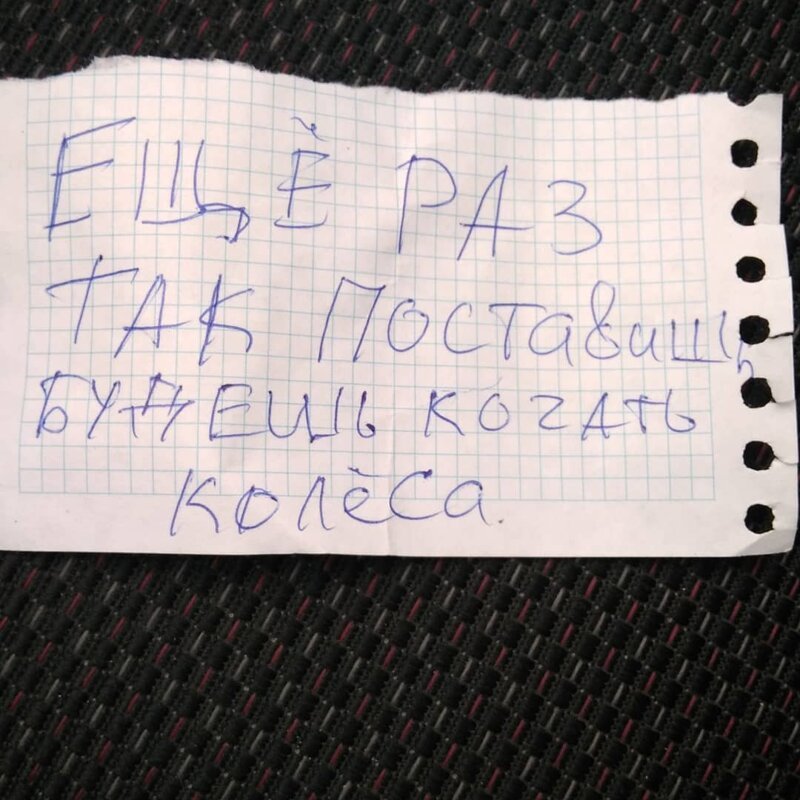 ЕЩЁ РАЗ
ТАК ПОСТАВИШЬ
БУДЕШЬ КОЧАТЬ
КОЛЁСА.